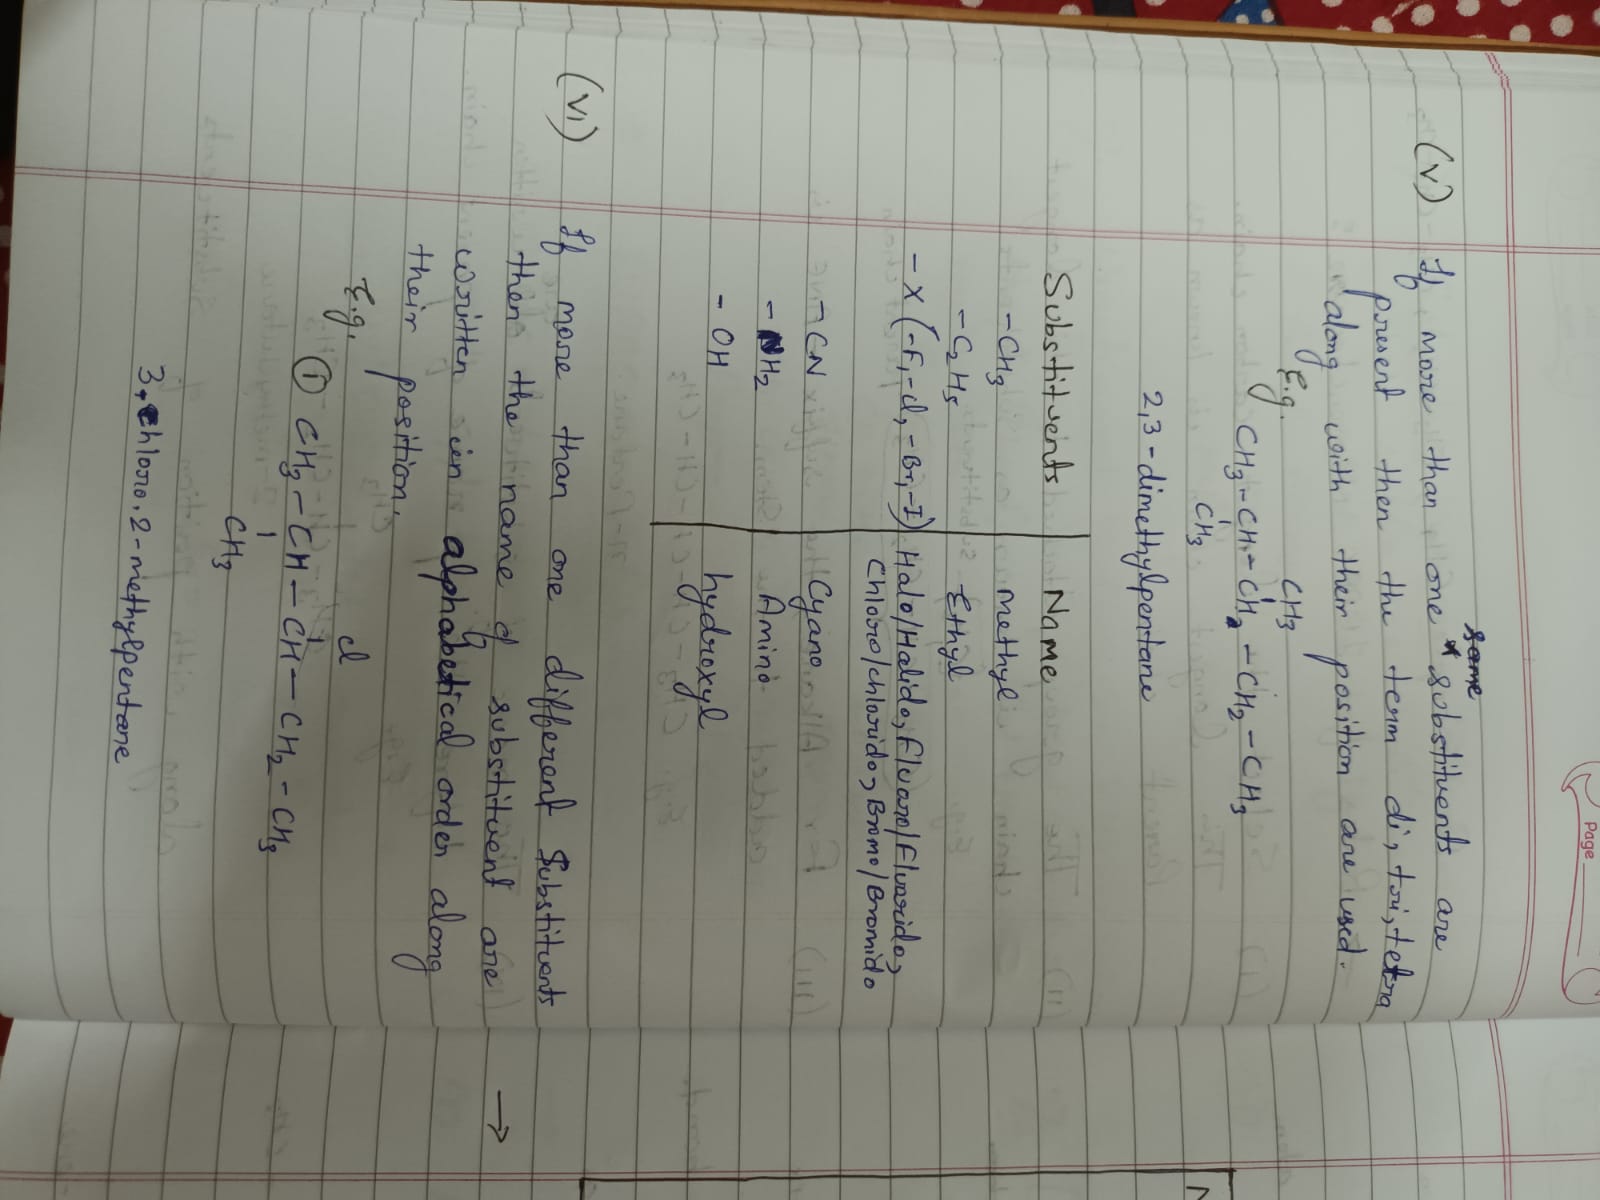 Page
(v) If more than one same substituents are
present then the term di, tri, tetra
along with their position are used.
E.g. CH3
CH3-CH-CH2-CH2-CH3
CH3
2,3-dimethylpentane
Substituents Name
-CH3 methyl
-C2H5 Ethyl
-X (-F,-Cl,-Br,-I) Halo/Halido, Fluoro/Fluorido,
Chloro/chlorido, Bromo/Bromido
-CN Cyano
-NH2 Amino
-OH hydroxyl
(vi) If more than one different substituents
then the name of substituent are →
written in alphabetical order along
their position.
E.g. Cl
① CH3-CH-CH-CH2-CH3
CH3
3-chloro-2-methylpentane